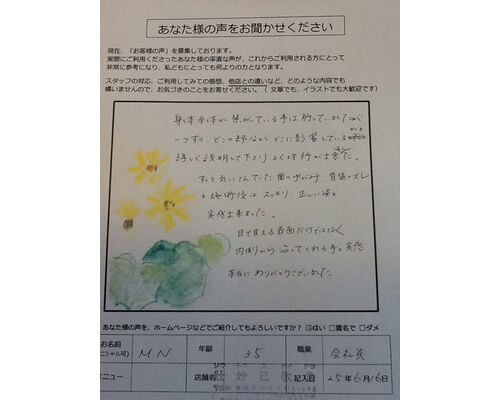 あなた様の声をお聞かせください
現在、「お客様の声」を募集しております。
実際にご利用くださったあなた様の率直な声が、これからご利用される方にとって
非常に参考になり、私どもにとっても何よりの力となります。
スタッフの対応、ご利用してみての感想、他店との違いなど、どのような内容でも
構いませんので、お気づきのことをお寄せください。（ 文章でも、イラストでも大歓迎です）
身体全体が 歪がんでいる事は 分っていましたが
一つずつ、どこの部分が どこに影響している
詳しく説明して下さり よく理解が出来ました。
ずっと気にしていた 歯のゆがみ、背筋のズレ
も施術後は スッキリ、正しい姿を
実感出来ました。
目で見える表面だけではなく
内側から 治ってくれる事を 実感
本当に ありがとうございました。
あなた様の声を、ホームページなどでご紹介してもよろしいですか？ ☑はい □匿名で □ダメ
お名前
ニシャル可)
M N
年齢
35
職業
会社員
メニュー
店舗名
記入日
25年6月16日